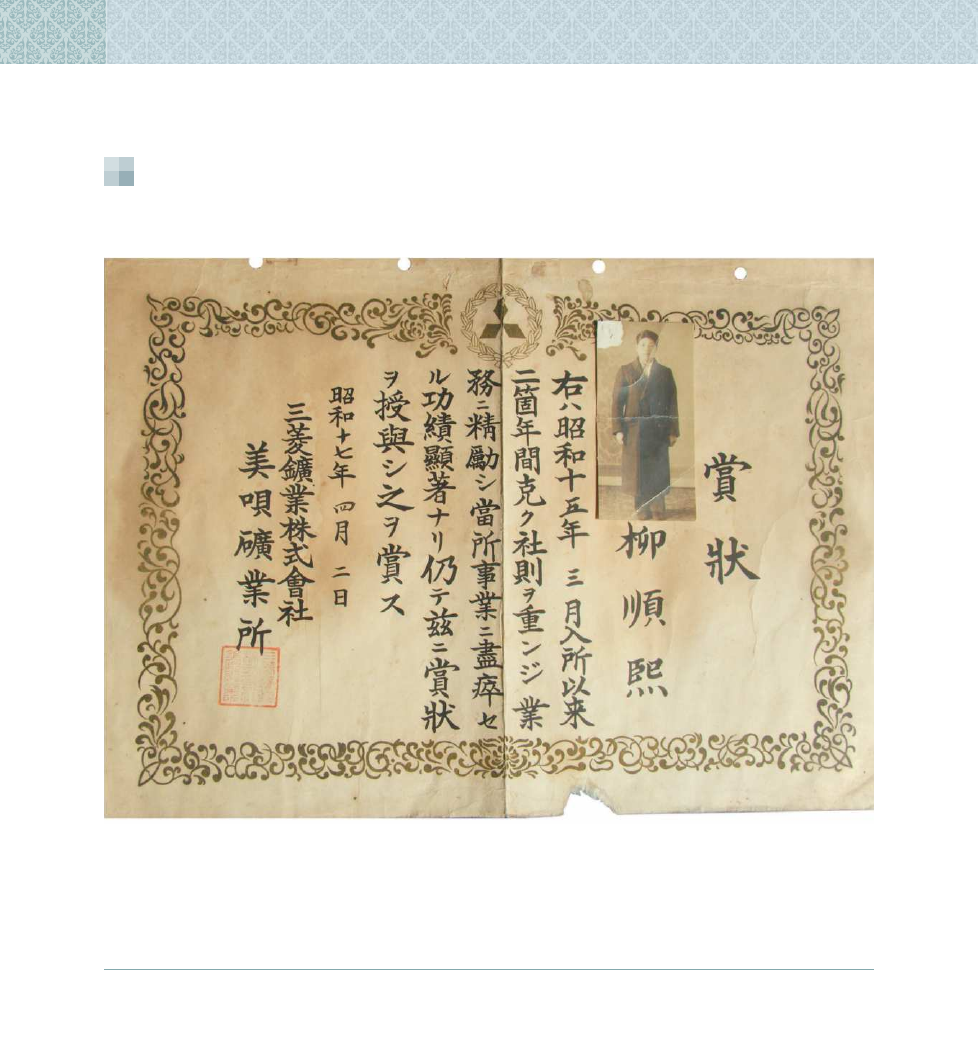 賞狀
柳順熙
右ハ昭和十五年三月入所以来
二箇年間克ク社則ヲ重ンジ業
務ニ精勵シ當所事業ニ盡瘁セ
ル功績顯著ナリ仍テ茲ニ賞狀
ヲ授與シ之ヲ賞ス
昭和十七年四月二日
三菱鑛業株式會社
美唄礦業所